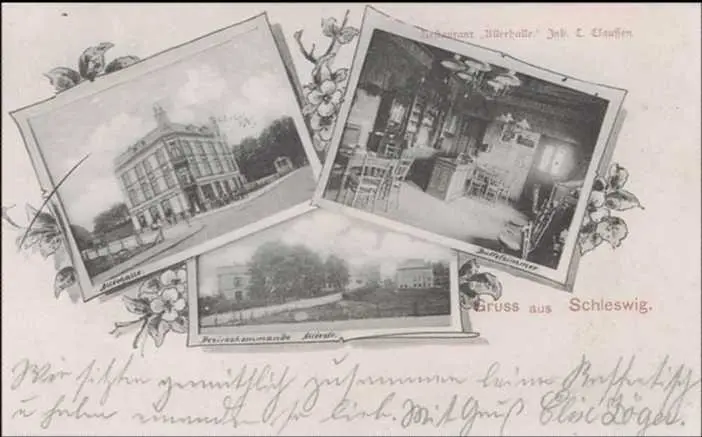 Restaurant „Allerhalle.“ Inh. C. Claussen
Allerhalle.
Büffetzimmer
Bezirkskommando Allerstr.
Gruss aus Schleswig.
Wir sitzen gemüthlich zusammen beim Kaffeetisch
u haben einander so lieb. Mit Gruß Elise Jöger.